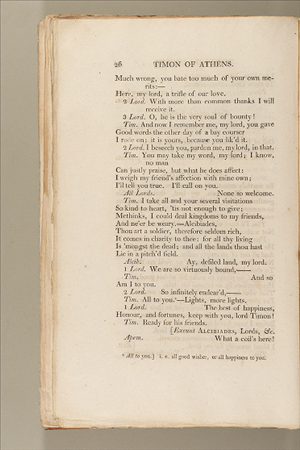 26 TIMON OF ATHENS.
Much wrong, you bate too much of your own me-
rits:—
Here, my lord, a trifle of our love.
2 Lord. With more than common thanks I will
receive it.
3 Lord. O, he is the very soul of bounty!
Tim. And now I remember me, my lord, you gave
Good words the other day of a bay courser
I rode on: it is yours, because you lik'd it.
2 Lord. I beseech you, pardon me, my lord, in that.
Tim. You may take my word, my lord; I know,
no man
Can justly praise, but what he does affect:
I weigh my friend's affection with mine own;
I'll tell you true. I'll call on you.
All Lords. None so welcome.
Tim. I take all and your several visitations
So kind to heart, 'tis not enough to give;
Methinks, I could deal kingdoms to my friends,
And ne'er be weary.—Alcibiades,
Thou art a soldier, therefore seldom rich,
It comes in charity to thee: for all thy living
Is 'mongst the dead; and all the lands thou hast
Lie in a pitch'd field.
Alcib. Ay, defiled land, my lord.
1 Lord. We are so virtuously bound,——
Tim. And so
Am I to you.
2 Lord. So infinitely endear'd,——
Tim. All to you.*—Lights, more lights.
1 Lord. The best of happiness,
Honour, and fortunes, keep with you, lord Timon!
Tim. Ready for his friends.
[Exeunt ALCIBIADES, Lords, &c.
Apem. What a coil's here!
* All to you.] i. e. all good wishes, or all happiness to you.